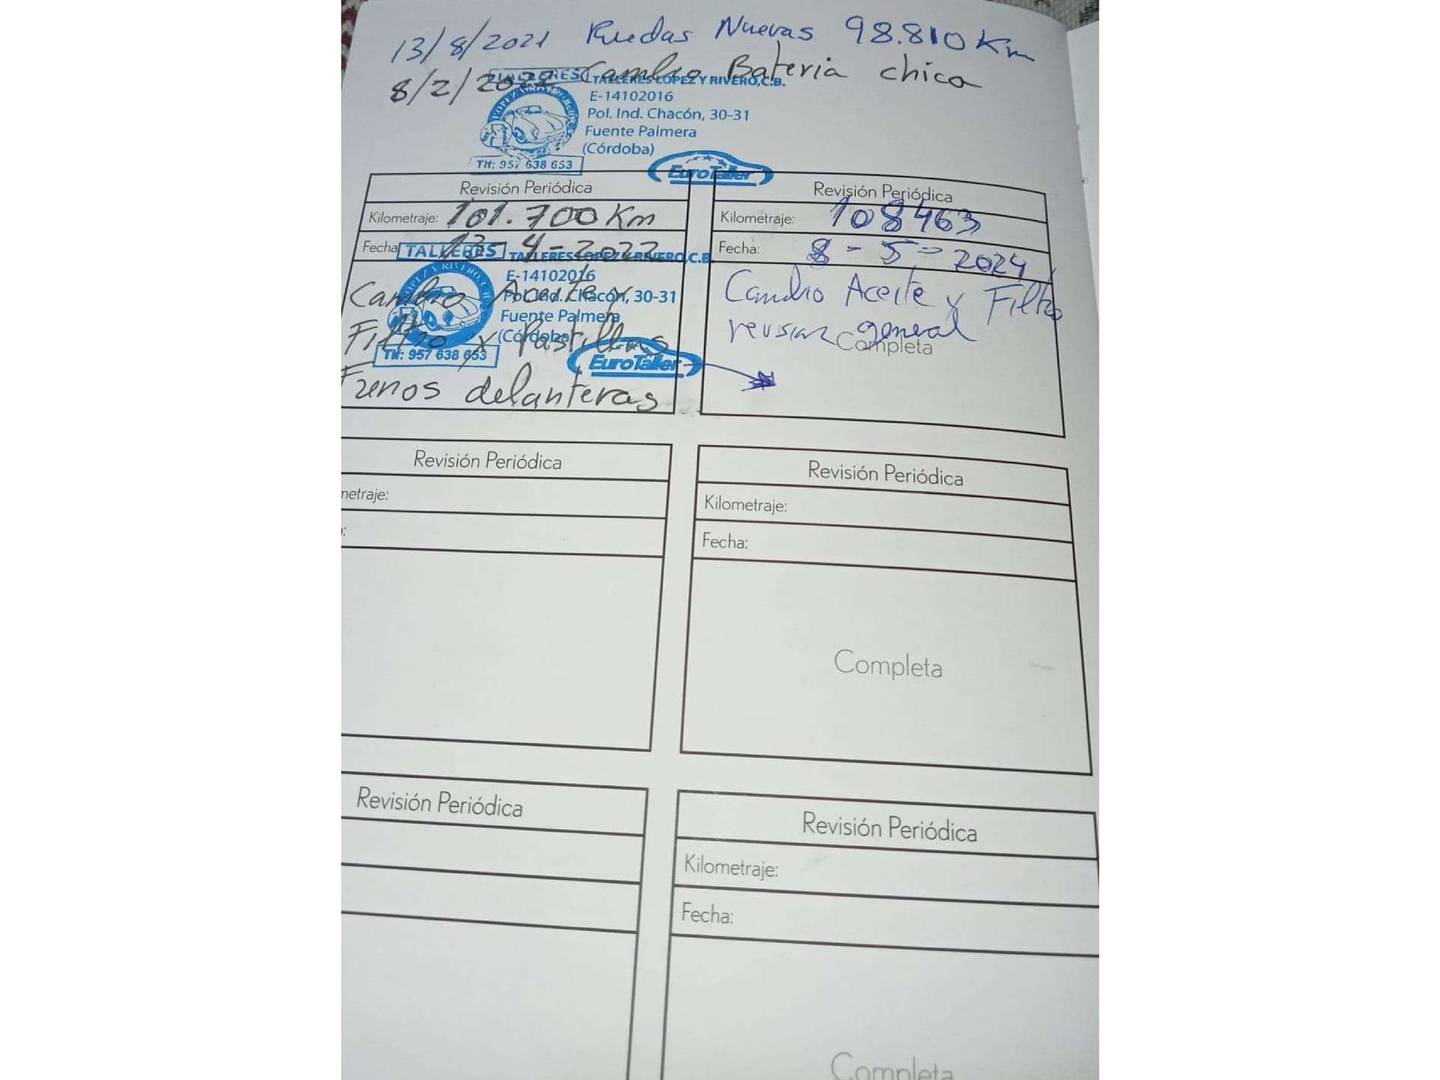 13/8/2021 Ruedas Nuevas 98.810 Km
8/2/2022 Cambio Bateria chica
TALLERES
TALLERES LOPEZ Y RIVERO, C.B.
E-14102016
Pol. Ind. Chacón, 30-31
Fuente Palmera
(Córdoba)
Tlf: 957 638 653
EuroTaller
Revisión Periódica
Kilometraje: 101.700 Km
Fecha 13-4-2022
TALLERES
TALLERES LOPEZ Y RIVERO, C.B.
E-14102016
Pol. Ind. Chacón, 30-31
Fuente Palmera
(Córdoba)
Tlf: 957 638 653
EuroTaller
Cambio Aceite y
Filtro y Pastillas
Frenos delanteras
Revisión Periódica
Kilometraje: 108463
Fecha: 8-5-2024
Cambio Aceite y Filtro
revision general
Completa
Revisión Periódica
netraje:
Revisión Periódica
Kilometraje:
Fecha:
Completa
Revisión Periódica
Revisión Periódica
Kilometraje:
Fecha:
Completa